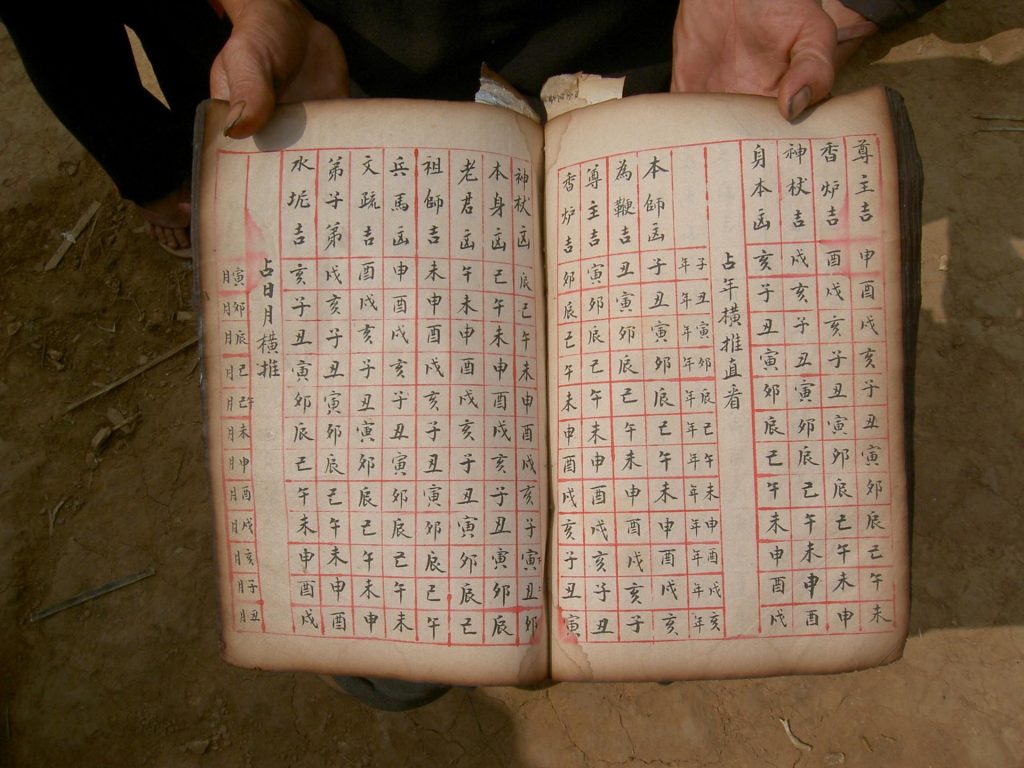 尊主吉申酉戌亥子丑寅卯辰己午未
香炉吉酉戌亥子丑寅卯辰己午未申
神杖吉戌亥子丑寅卯辰己午未申酉
身本凶亥子丑寅卯辰己午未申酉戌
占年横推直看
子年丑年寅年卯年辰年己年午年未年申年酉年戌年亥年
本師凶子丑寅卯辰己午未申酉戌亥
為鞭吉丑寅卯辰己午未申酉戌亥子
尊主吉寅卯辰己午未申酉戌亥子丑
香炉吉卯辰己午未申酉戌亥子丑寅
神杖凶辰己午未申酉戌亥子寅丑卯
本身凶己午未申酉戌亥子丑寅卯辰
老君凶午未申酉戌亥子丑寅卯辰己
祖師吉未申酉戌亥子丑寅卯辰己午
兵馬凶申酉戌亥子丑寅卯辰己午未
文疏吉酉戌亥子丑寅卯辰己午未申
弟子弟戌亥子丑寅卯辰己午未申酉
水坵吉亥子丑寅卯辰己午未申酉戌
占日月横推
寅月卯月辰月己月己午月未月申月酉月戌月亥月子月丑月